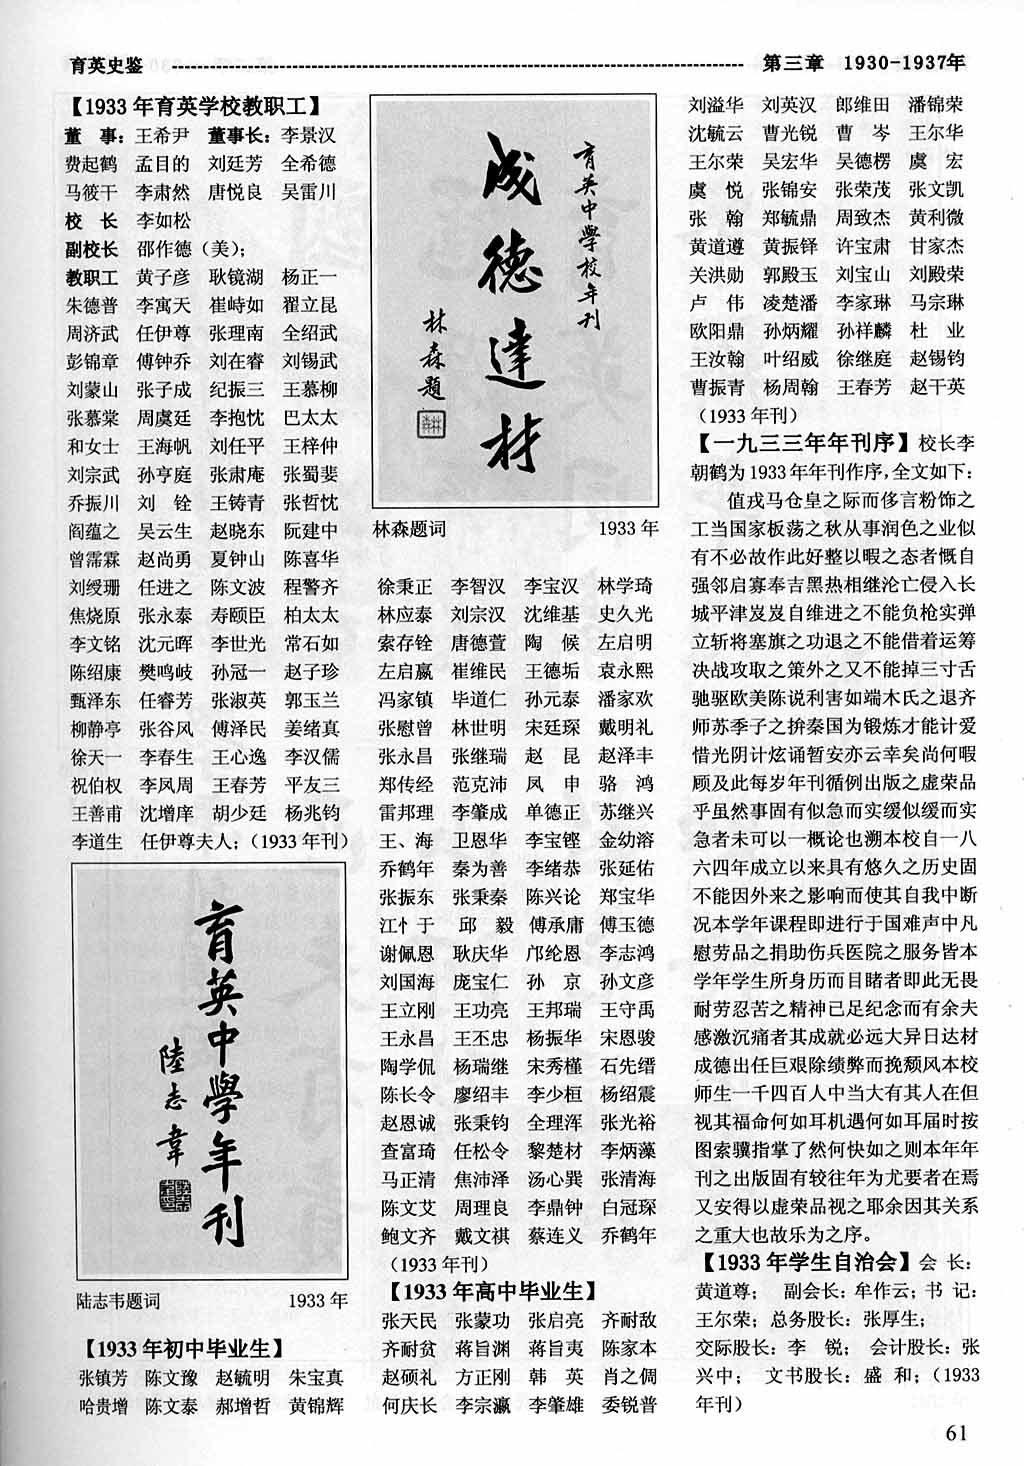 育英史鉴 第三章 1930-1937年
【1933年育英学校教职工】
董 事：王希尹 董事长：李景汉
费起鹤 孟目的 刘廷芳 全希德
马筱干 李肃然 唐悦良 吴雷川
校 长 李如松
副校长 邵作德（美）；
教职工 黄子彦 耿镜湖 杨正一
朱德普 李寓天 崔峙如 翟立昆
周济武 任伊尊 张理南 全绍武
彭锦章 傅钟乔 刘在睿 刘锡武
刘蒙山 张子成 纪振三 王慕柳
张慕棠 周虞廷 李抱忱 巴太太
和女士 王海帆 刘任平 王梓仲
刘宗武 孙亨庭 张肃庵 张蜀裴
乔振川 刘 铨 王铸青 张哲忱
阎蕴之 吴云生 赵晓东 阮建中
曾霈霖 赵尚勇 夏钟山 陈喜华
刘绶珊 任进之 陈文波 程警齐
焦烧原 张永泰 寿颐臣 柏太太
李文铭 沈元晖 李世光 常石如
陈绍康 樊鸣岐 孙冠一 赵子珍
甄泽东 任睿芳 张淑英 郭玉兰
柳静亭 张谷风 傅泽民 姜绪真
徐天一 李春生 王心逸 李汉儒
祝伯权 李凤周 王春芳 平友三
王善甫 沈增庠 胡少廷 杨兆钧
李道生 任伊尊夫人；（1933年刊）
育英中學年刊
陸志韋
陆志韦题词 1933年
【1933年初中毕业生】
张镇芳 陈文豫 赵毓明 朱宝真
哈贵增 陈文泰 郝增哲 黄锦辉
育英中學校年刊
成德達材
林森題
林森题词 1933年
徐秉正 李智汉 李宝汉 林学琦
林应泰 刘宗汉 沈维基 史久光
索存铨 唐德萱 陶 候 左启明
左启嬴 崔维民 王德垢 袁永熙
冯家镇 毕道仁 孙元泰 潘家欢
张慰曾 林世明 宋廷琛 戴明礼
张永昌 张继瑞 赵 昆 赵泽丰
郑传经 范克沛 凤 申 骆 鸿
雷邦理 李肇成 单德正 苏继兴
王、海 卫恩华 李宝铿 金幼溶
乔鹤年 秦为善 李绪恭 张延佑
张振东 张秉秦 陈兴论 郑宝华
江忄于 邱 毅 傅承庸 傅玉德
谢佩恩 耿庆华 邝纶恩 李志鸿
刘国海 庞宝仁 孙 京 孙文彦
王立刚 王功亮 王邦瑞 王守禹
王永昌 王丕忠 杨振华 宋恩骏
陶学侃 杨瑞继 宋秀槿 石先缙
陈长令 廖绍丰 李少桓 杨绍震
赵恩诚 张秉钧 全理浑 张光裕
查富琦 任松令 黎楚材 李炳藻
马正清 焦沛泽 汤心巽 张清海
陈文艾 周理良 李鼎钟 白冠琛
鲍文齐 戴文祺 蔡连义 乔鹤年
（1933年刊）
【1933年高中毕业生】
张天民 张蒙功 张启亮 齐耐敌
齐耐贫 蒋旨渊 蒋旨夷 陈家本
赵硕礼 方正刚 韩 英 肖之倜
何庆长 李宗瀛 李肇雄 委锐普
刘溢华 刘英汉 郎维田 潘锦荣
沈毓云 曹光锐 曹 岑 王尔华
王尔荣 吴宏华 吴德楞 虞 宏
虞 悦 张锦安 张荣茂 张文凯
张 翰 郑毓鼎 周致杰 黄利微
黄道遵 黄振铎 许宝肃 甘家杰
关洪勋 郭殿玉 刘宝山 刘殿荣
卢 伟 凌楚潘 李家琳 马宗琳
欧阳鼎 孙炳耀 孙祥麟 杜 业
王汝翰 叶绍威 徐继庭 赵锡钧
曹振青 杨周翰 王春芳 赵干英
（1933年刊）
【一九三三年年刊序】校长李
朝鹤为1933年年刊作序，全文如下：
值戎马仓皇之际而侈言粉饰之
工当国家板荡之秋从事润色之业似
有不必故作此好整以暇之态者慨自
强邻启寡奉吉黑热相继沦亡侵入长
城平津岌岌自维进之不能负枪实弹
立斩将塞旗之功退之不能借着运筹
决战攻取之策外之又不能掉三寸舌
驰驱欧美陈说利害如端木氏之退齐
师苏季子之拚秦国为锻炼才能计爱
惜光阴计炫诵暂安亦云幸矣尚何暇
顾及此每岁年刊循例出版之虚荣品
乎虽然事固有似急而实缓似缓而实
急者未可以一概论也溯本校自一八
六四年成立以来具有悠久之历史固
不能因外来之影响而使其自我中断
况本学年课程即进行于国难声中凡
慰劳品之捐助伤兵医院之服务皆本
学年学生所身历而目睹者即此无畏
耐劳忍苦之精神已足纪念而有余夫
感激沉痛者其成就必远大异日达材
成德出任巨艰除绩弊而挽颓风本校
师生一千四百人中当大有其人在但
视其福命何如耳机遇何如耳届时按
图索骥指掌了然何快如之则本年年
刊之出版固有较往年为尤要者在焉
又安得以虚荣品视之耶余因其关系
之重大也故乐为之序。
【1933年学生自治会】会 长：
黄道尊； 副会长：牟作云；书 记：
王尔荣；总务股长：张厚生；
交际股长：李 锐； 会计股长：张
兴中； 文书股长：盛 和；（1933
年刊）
61